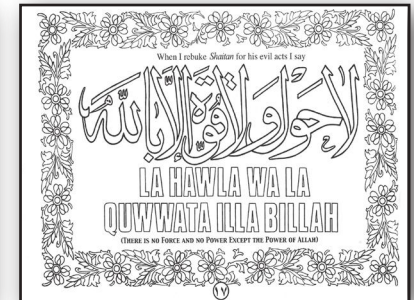 When I rebuke Shaitan for his evil acts I say
لا حول ولا قوة إلا بالله
LA HAWLA WA LA
QUWWATA ILLA BILLAH
(THERE IS NO FORCE AND NO POWER EXCEPT THE POWER OF ALLAH)
١٧